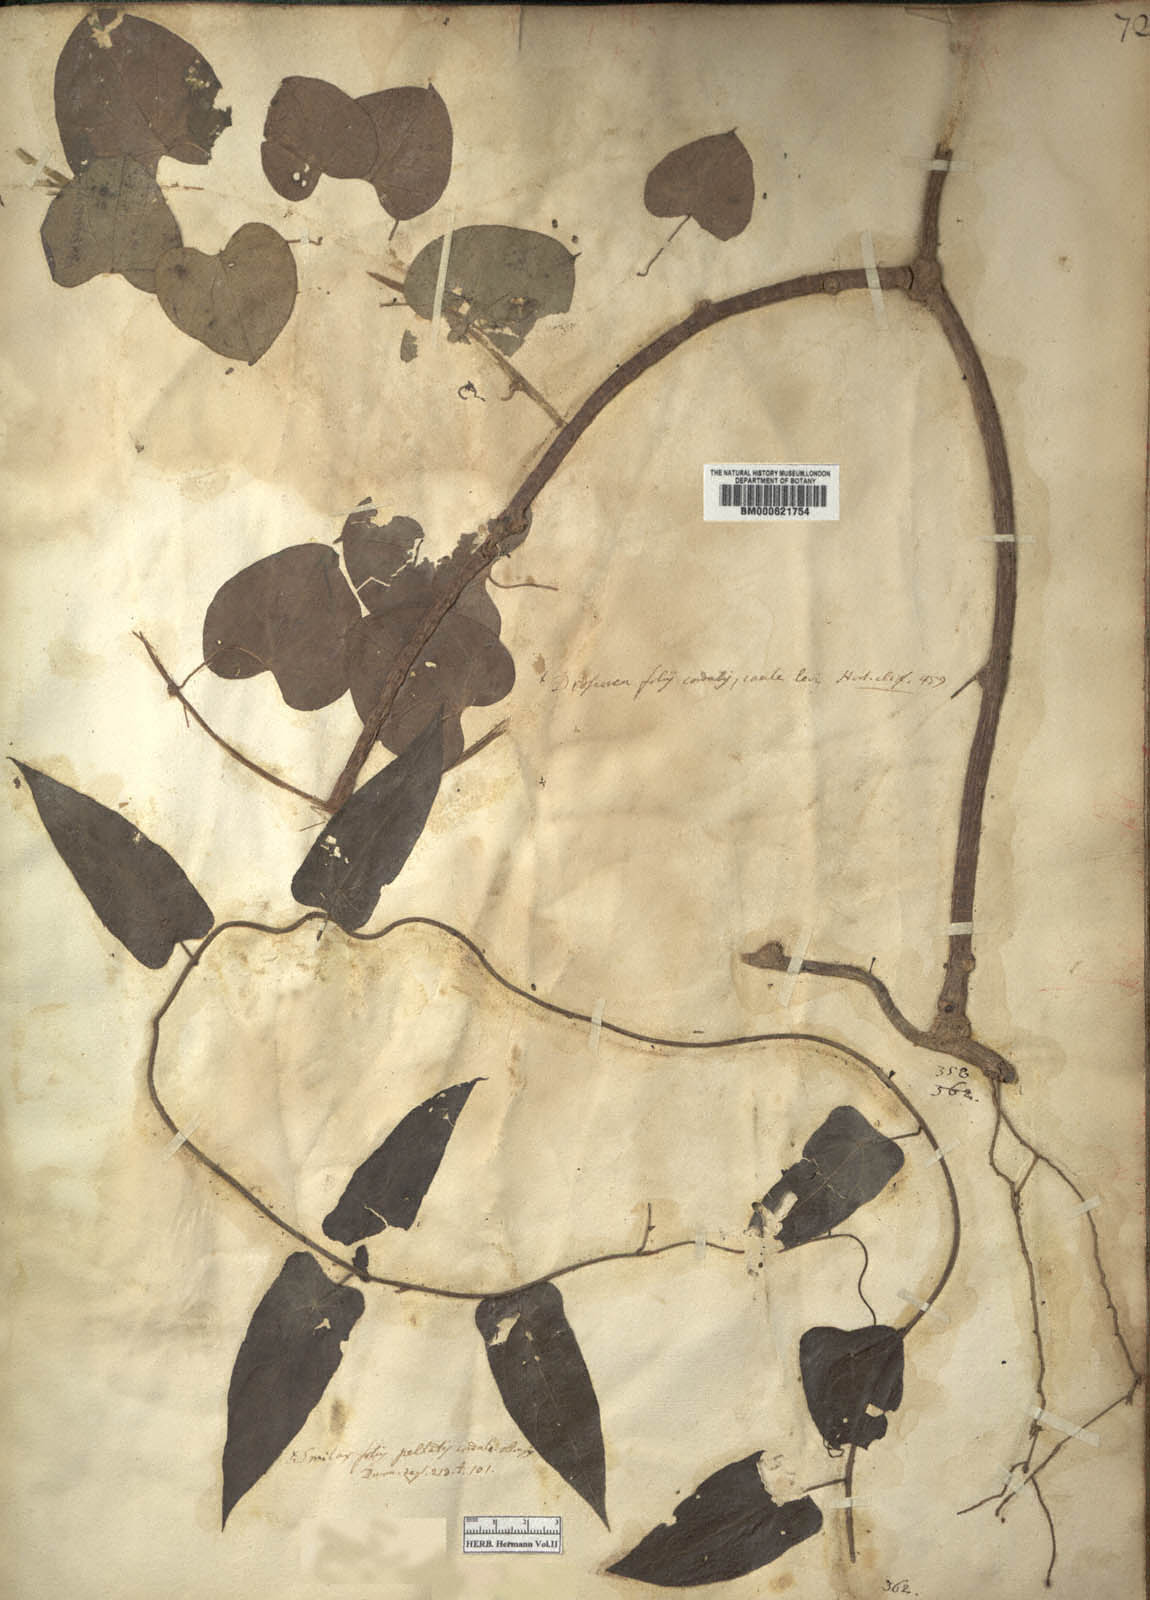 72
THE NATURAL HISTORY MUSEUM, LONDON
DEPARTMENT OF BOTANY
BM000621754
Dioscorea foliis cordatis, caule levi Hort. clif. 459
358
362.
Smilax foliis peltatis
Burm. zeyl. 218. t. 101.
mm 1 2 3
HERB. Hermann Vol.II
362.